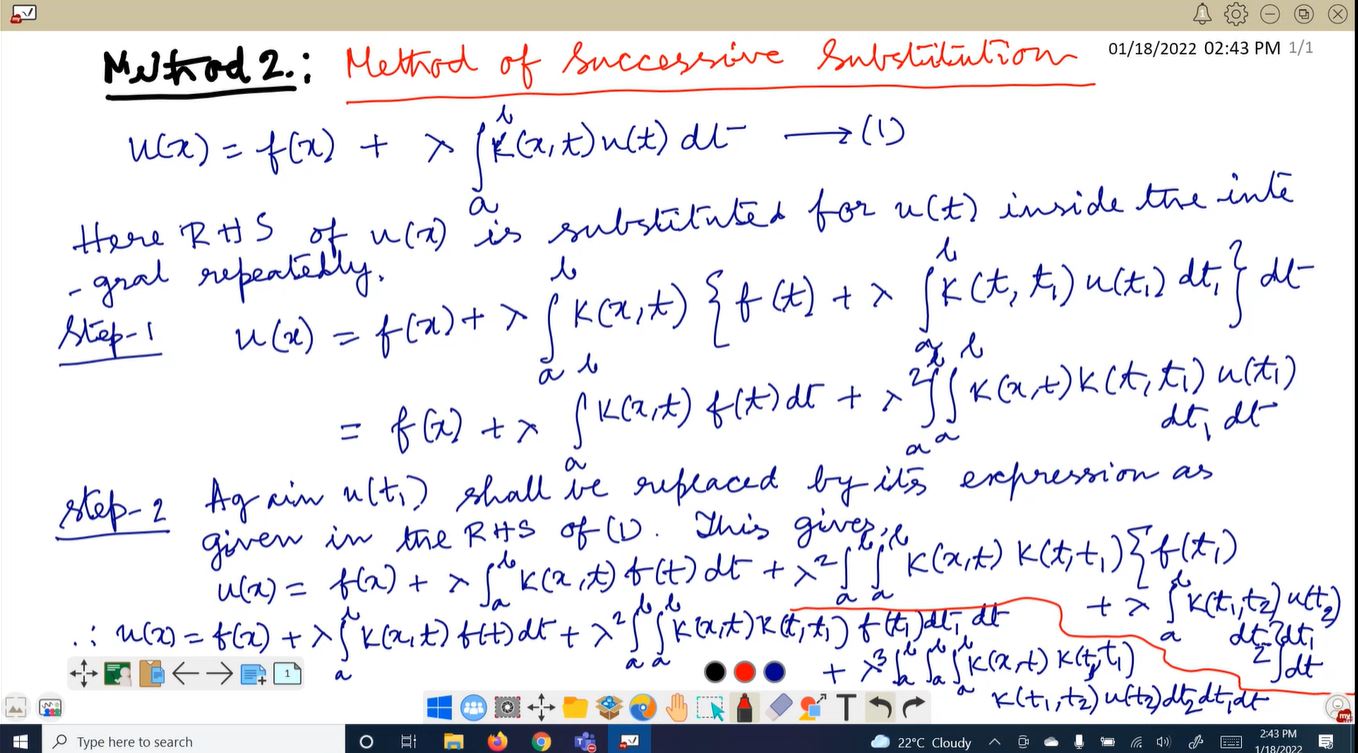 Method 2.: Method of Successive Substitution
01/18/2022 02:43 PM 1/1
u(x) = f(x) + λ ∫_a^b K(x,t) u(t) dt ⟶ (1)
Here RHS of u(x) is substituted for u(t) inside the inte
-gral repeatedly.
Step-1 u(x) = f(x) + λ ∫_a^b K(x,t) { f(t) + λ ∫_a^b K(t,t₁) u(t₁) dt₁ } dt
= f(x) + λ ∫_a^b K(x,t) f(t) dt + λ² ∫_a^b ∫_a^b K(x,t) K(t,t₁) u(t₁)
dt₁ dt
Step-2 Again u(t₁) shall be replaced by its expression as
given in the RHS of (1). This gives,
u(x) = f(x) + λ ∫_a^b K(x,t) f(t) dt + λ² ∫_a^b ∫_a^b K(x,t) K(t,t₁) { f(t₁)
+ λ ∫_a^b K(t₁,t₂) u(t₂)
dt₂ } dt₁
dt
∴ u(x) = f(x) + λ ∫_a^b K(x,t) f(t) dt + λ² ∫_a^b ∫_a^b K(x,t) K(t,t₁) f(t₁) dt₁ dt
+ λ³ ∫_a^b ∫_a^b ∫_a^b K(x,t) K(t,t₁)
K(t₁,t₂) u(t₂) dt₂ dt₁ dt
1
T
Type here to search
22°C Cloudy
2:43 PM
1/18/2022